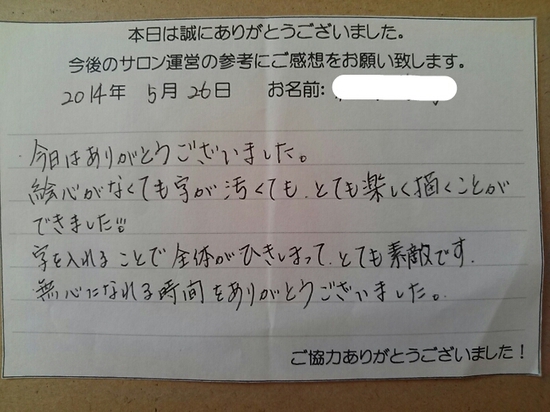 本日は誠にありがとうございました。
今後のサロン運営の参考にご感想をお願い致します。
2014年 5月26日 お名前:
今日はありがとうございました。
絵心がなくても字が汚くても、とても楽しく描くことが
できました!!
字を入れることで全体がひきしまって、とても素敵です。
無心になれる時間をありがとうございました。
ご協力ありがとうございました!